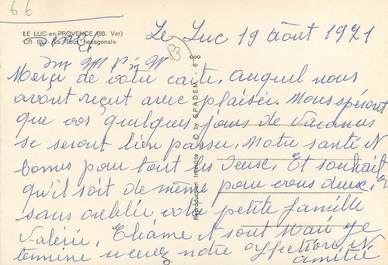 66
LE LUC-en-PROVENCE (83. Var)
Le Luc 19 Aôut 1971
83
Merçi de votre carte. Auquel nous
avont reçut avec plaisir. Nous espéront
que vos quelques jours de vacances
se seront bien passer. Notre santé et
bonne pour tout les deuse. Et souhait
qu'il soit de même pour vous deuse,
sans oublié votre petite famille
Valérie, et sont Mari je
termine avec notre affection et
amitié